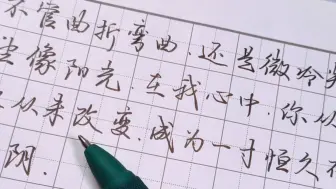 不管曲折弯曲.还是微冷
像阳光.在我心中.你从
从来改变.成为一寸恒久
阴.